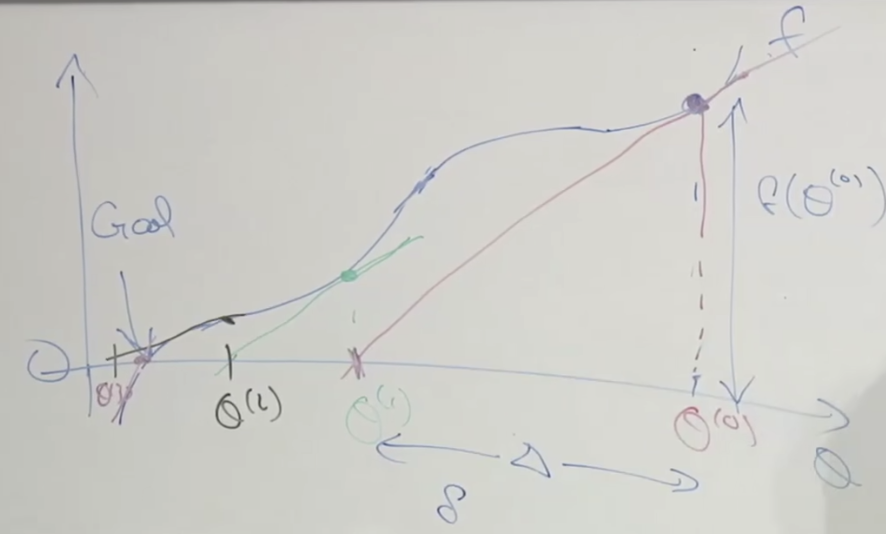 f
Goal
f(θ^(0))
0
θ^(2)
θ^(1)
θ^(0)
θ
Δ
δ